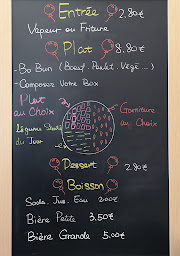 Entrée 2.80€
Vapeur ou Friture
Plat 8.80€
- Bo Bun (Boeuf. Poulet. Végé...)
- Composer Votre Box
Plat
au Choix
Garniture
au Choix
Légumes Sautés
du Jour
Dessert
2.80€
Boisson
Soda. Jus. Eau 2.00€
Bière Petite 3.50€
Bière Grande 5.00€